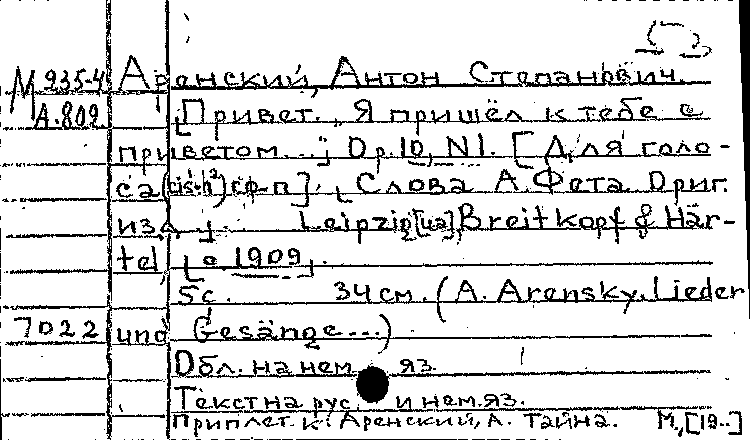 М 935-4 Аренский, Антон Степанович.
А.802 [Привет. „Я пришёл к тебе с
приветом..."; Op.10, N1. [Для голо-
са (cis-h²) с ф-п]. [Слова А. Фета. Ориг.
изд.] Leipzig [и а], Breitkopf & Här-
tel, [о. 1909].
5с. 34 см. (A. Arensky. Lieder
7022 und Gesänge...)
Обл. на нем яз
Текст на рус. и нем. яз.
Приплет. к: Аренский, А. Тайна. М, [19..]